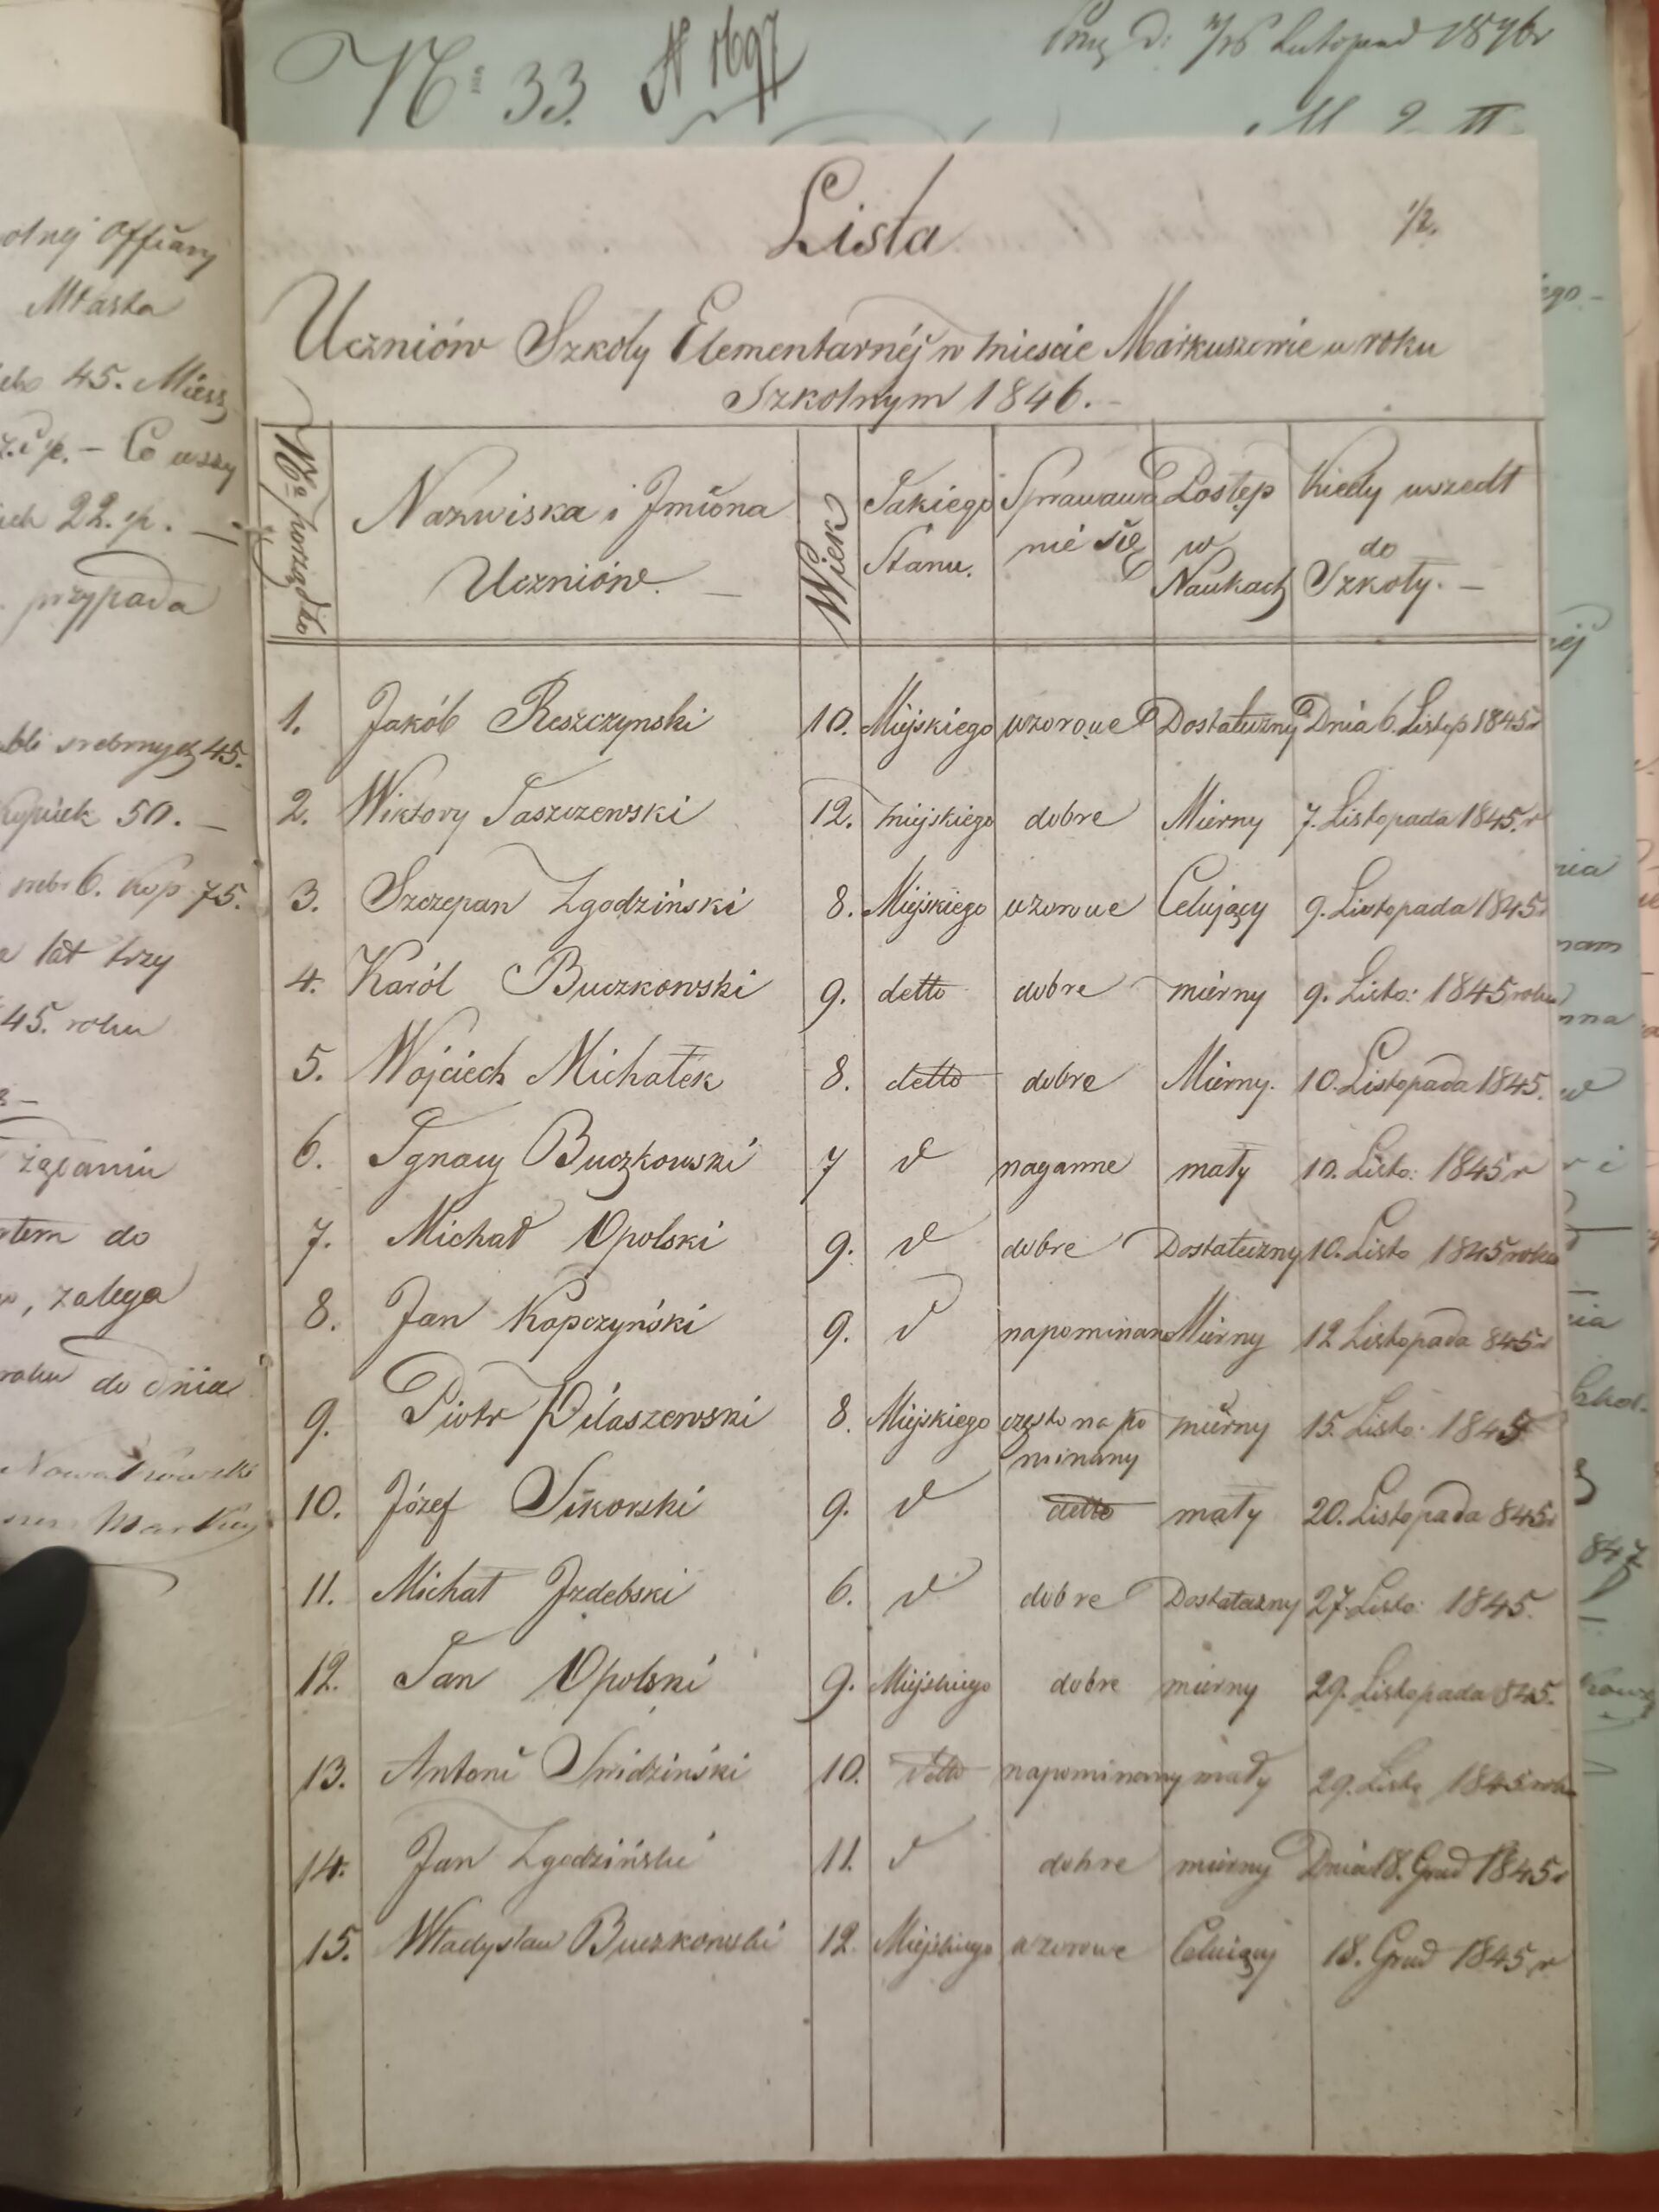 № 33. N 1697
Listopad 1846r
Lista
1/2.
Uczniów Szkoły Elementarnéj w mieście Markuszewie w roku
Szkolnym 1846.-
Nº porządko
Nazwiska i Jmiona Uczniów. —
Wiek
Jakiego Stanu.
Sprawowa nié się
Postęp w Naukach
Kiedy wszedł do Szkoły. —
1. Jakób Reszczynski 10. Miejskiego wzorowe Dostateczny Dnia 6. Listop 1845r
2. Wiktory Jaszczewski 12. miejskiego dobre Miérny 7. Listopada 1845.r
3. Szczepan Zgodziński 8. Miejskiego wzorowe Celujący 9. Listopada 1845r
4. Karól Buczkowski 9. detto dobre miérny 9. Listo: 1845 roku
5. Wojciech Michałek 8. detto dobre Miérny. 10. Listopada 1845.
6. Ignacy Buczkowski 7 d naganne mały 10. Listo: 1845 r
7. Michał Opolski 9. d dobre Dostateczny 10. Listo 1845 roku
8. Jan Kopczyński 9. d napominan Miérny 12 Listopada 845r
9. Piotr Pilaszewski 8. Miejskiego często na po miérny 15. Listo: 1845
minany
10. Józef Sikorski 9. d detto mały 20. Listopada 845r
11. Michał Jzdebski 6. d dobre Dostateczny 27. Listo: 1845.
12. Jan Opolski 9. Miejskiego dobre miérny 29. Listopada 845.
13. Antoni Swidziński 10. detto napominany mały 29. Listo 1845 roku
14. Jan Zgodziński 11. d dobre miérny Dnia 18. Grud 1845r
15. Władysław Buczkowski 12. Miejskiego wzorowe Celujący 18. Grud 1845 r
Miasta
45. Miesz
Co wszy
22. p. —
przypada
srebrnych 45.
kopiek 50. —
srebr 6. kop 75.
lat trzy
45. roku
żądaniu
do
zalega
roku do dnia